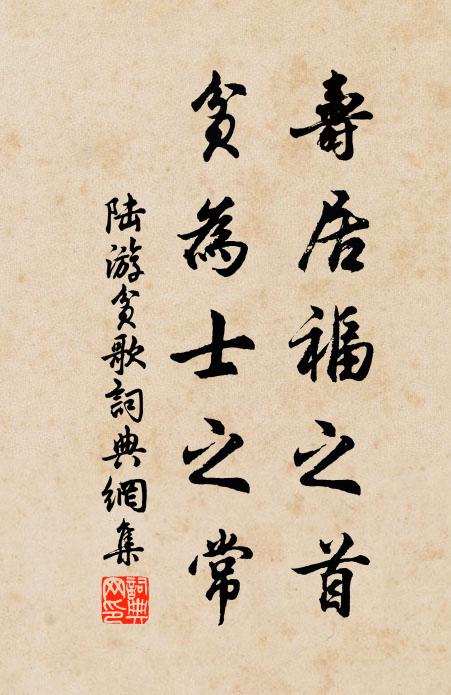 壽居福之首
貧為士之常
陸游貧歌詞典網集
詞典网印